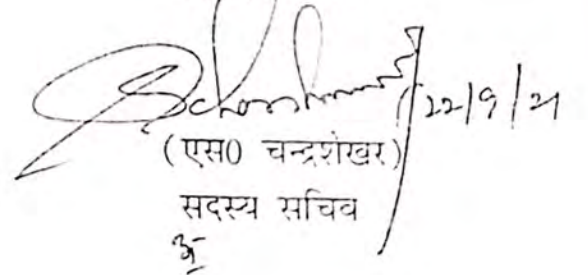 22/9/21
(एस0 चन्द्रशेखर)
सदस्य सचिव